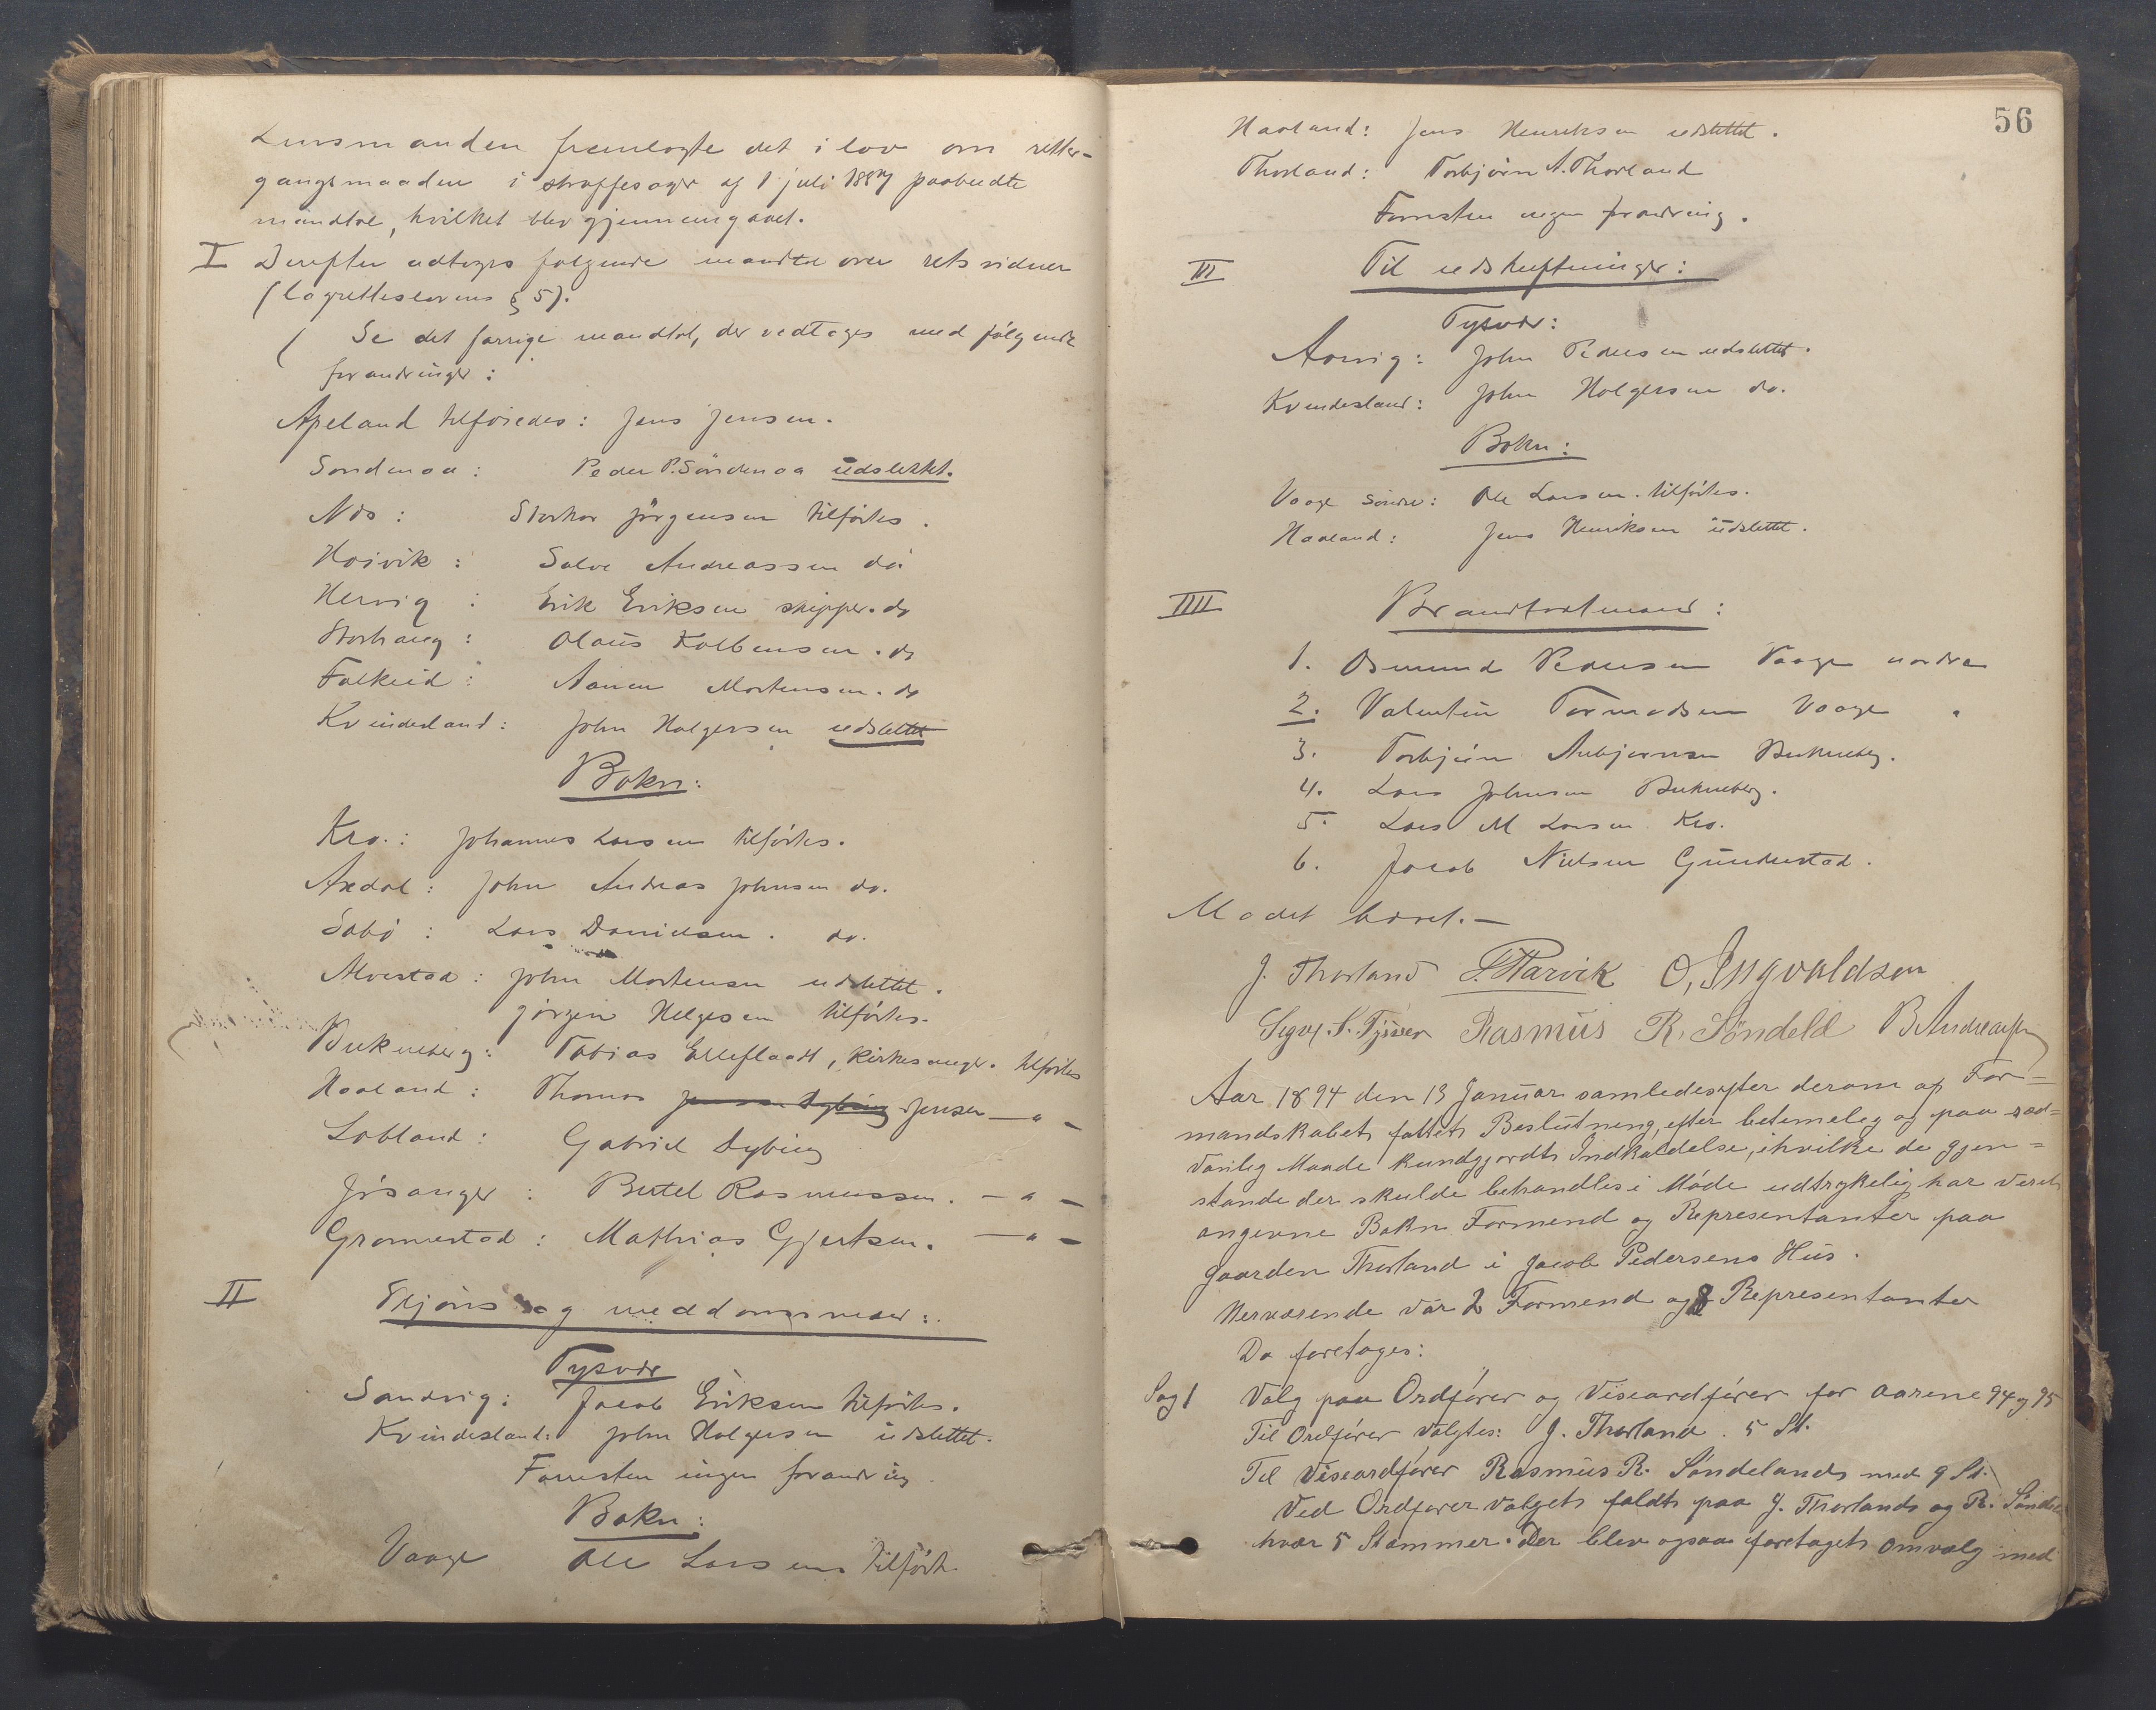 Lensmanden fremlagte det i lov om retter-
gangsmaaden i straffesager af 1 juli 1887 paabudte
mandtal, hvilket blev gjennemgaaet.
I Derefter udtoges følgende mandtal over retsvidner
(lagretteslovens § 5).
( Se det forrige mandtal, der vedtages med følgende
forandringer:
Apeland tilføiedes: Jens Jensen.
Søndenaa: Peder P. Søndenaa udslettet.
Nes: Storkor Jörgensen tilførtes.
Høivik: Salve Andreassen do
Hervig: Erik Eriksen skipper. do
Storhaug: Olaus Kolbensen. do
Falkeid: Aanen Mortensen. do
Kvindesland: John Holgersen udslettet
Bokn:
Kro.: Johannes Larsen tilførtes.
Axdal: John Andreas Johnsen do.
Sabø: Lars Danielsen. do.
Alvestad: John Mortensen udslettet.
Jörgen Helgesen tilførtes.
Bukneberg: Tobias Elleflaadt, kirkesanger. tilførtes
Haaland: Thomas Jensen —"—
Løbland: Gabriel Dybing
Jøsanger: Bertel Rasmussen. —"—
Gronnestad: Mathias Gjertsen. —"—
II Skjøns og meddomsmænd:
Tysvær
Sandvig: Jacob Eriksen tilførtes.
Kvindesland: John Holgersen udslettet.
Forresten ingen forandring
Bokn:
Vaage Ole Larsen tilført.
56
Haaland: Jens Henriksen udslettet.
Thorland: Torbjörn A. Thorland
Forresten ingen forandring.
III Til udskiftninger:
Tysvær:
Aarvig: John Pedersen udslettet.
Kvindesland: John Holgersen do.
Bokn:
Vaage søndre: Ole Larsen. tilførtes.
Haaland: Jens Henriksen udslettet.
IIII Brandtaxtmænd:
1. Osmund Pedersen Vaage nordre
2. Valentin Tormodsen Vaage "
3. Torbjörn Aubjørnsen Bukneberg.
4. Lars Johnsen Bukneberg.
5. Lars M Larsen Kro.
6. Jacob Nielsen Gunderstad.
Mødet hævet.—
J. Thorland Harvik O, Ingvaldsen
S. Tysver Rasmus R. Söndeld B. Andreassen
Aar 1894 den 13 Januar samledes efter derom af For=
mandskabets fattets Beslutning, efter betimelig og paa sæd=
vanlig Maade kundgjordts Indkaldelse, i hvilke de gjen=
stande der skulde behandles i Møde udtrykelig har veret
angevne Bokn Formend og Representanter paa
Gaarden Thorland i Jacob Pedersens Hus.
Nerværende var 2 Formend og 8 Representanter
Da foretages:
Sag 1 Valg paa Ordfører og Viseordfører for aarene 94 og 95
Til Ordfører Valgtes: J. Thorland. 5 St.
Til Viseordfører Rasmus R. Søndelands med 9 St.
Ved Ordførervalgets faldts paa J. Thorlands og R. Sönde
hvær 5 Stemmer. Der blev ogsaa foretagets omvalg med